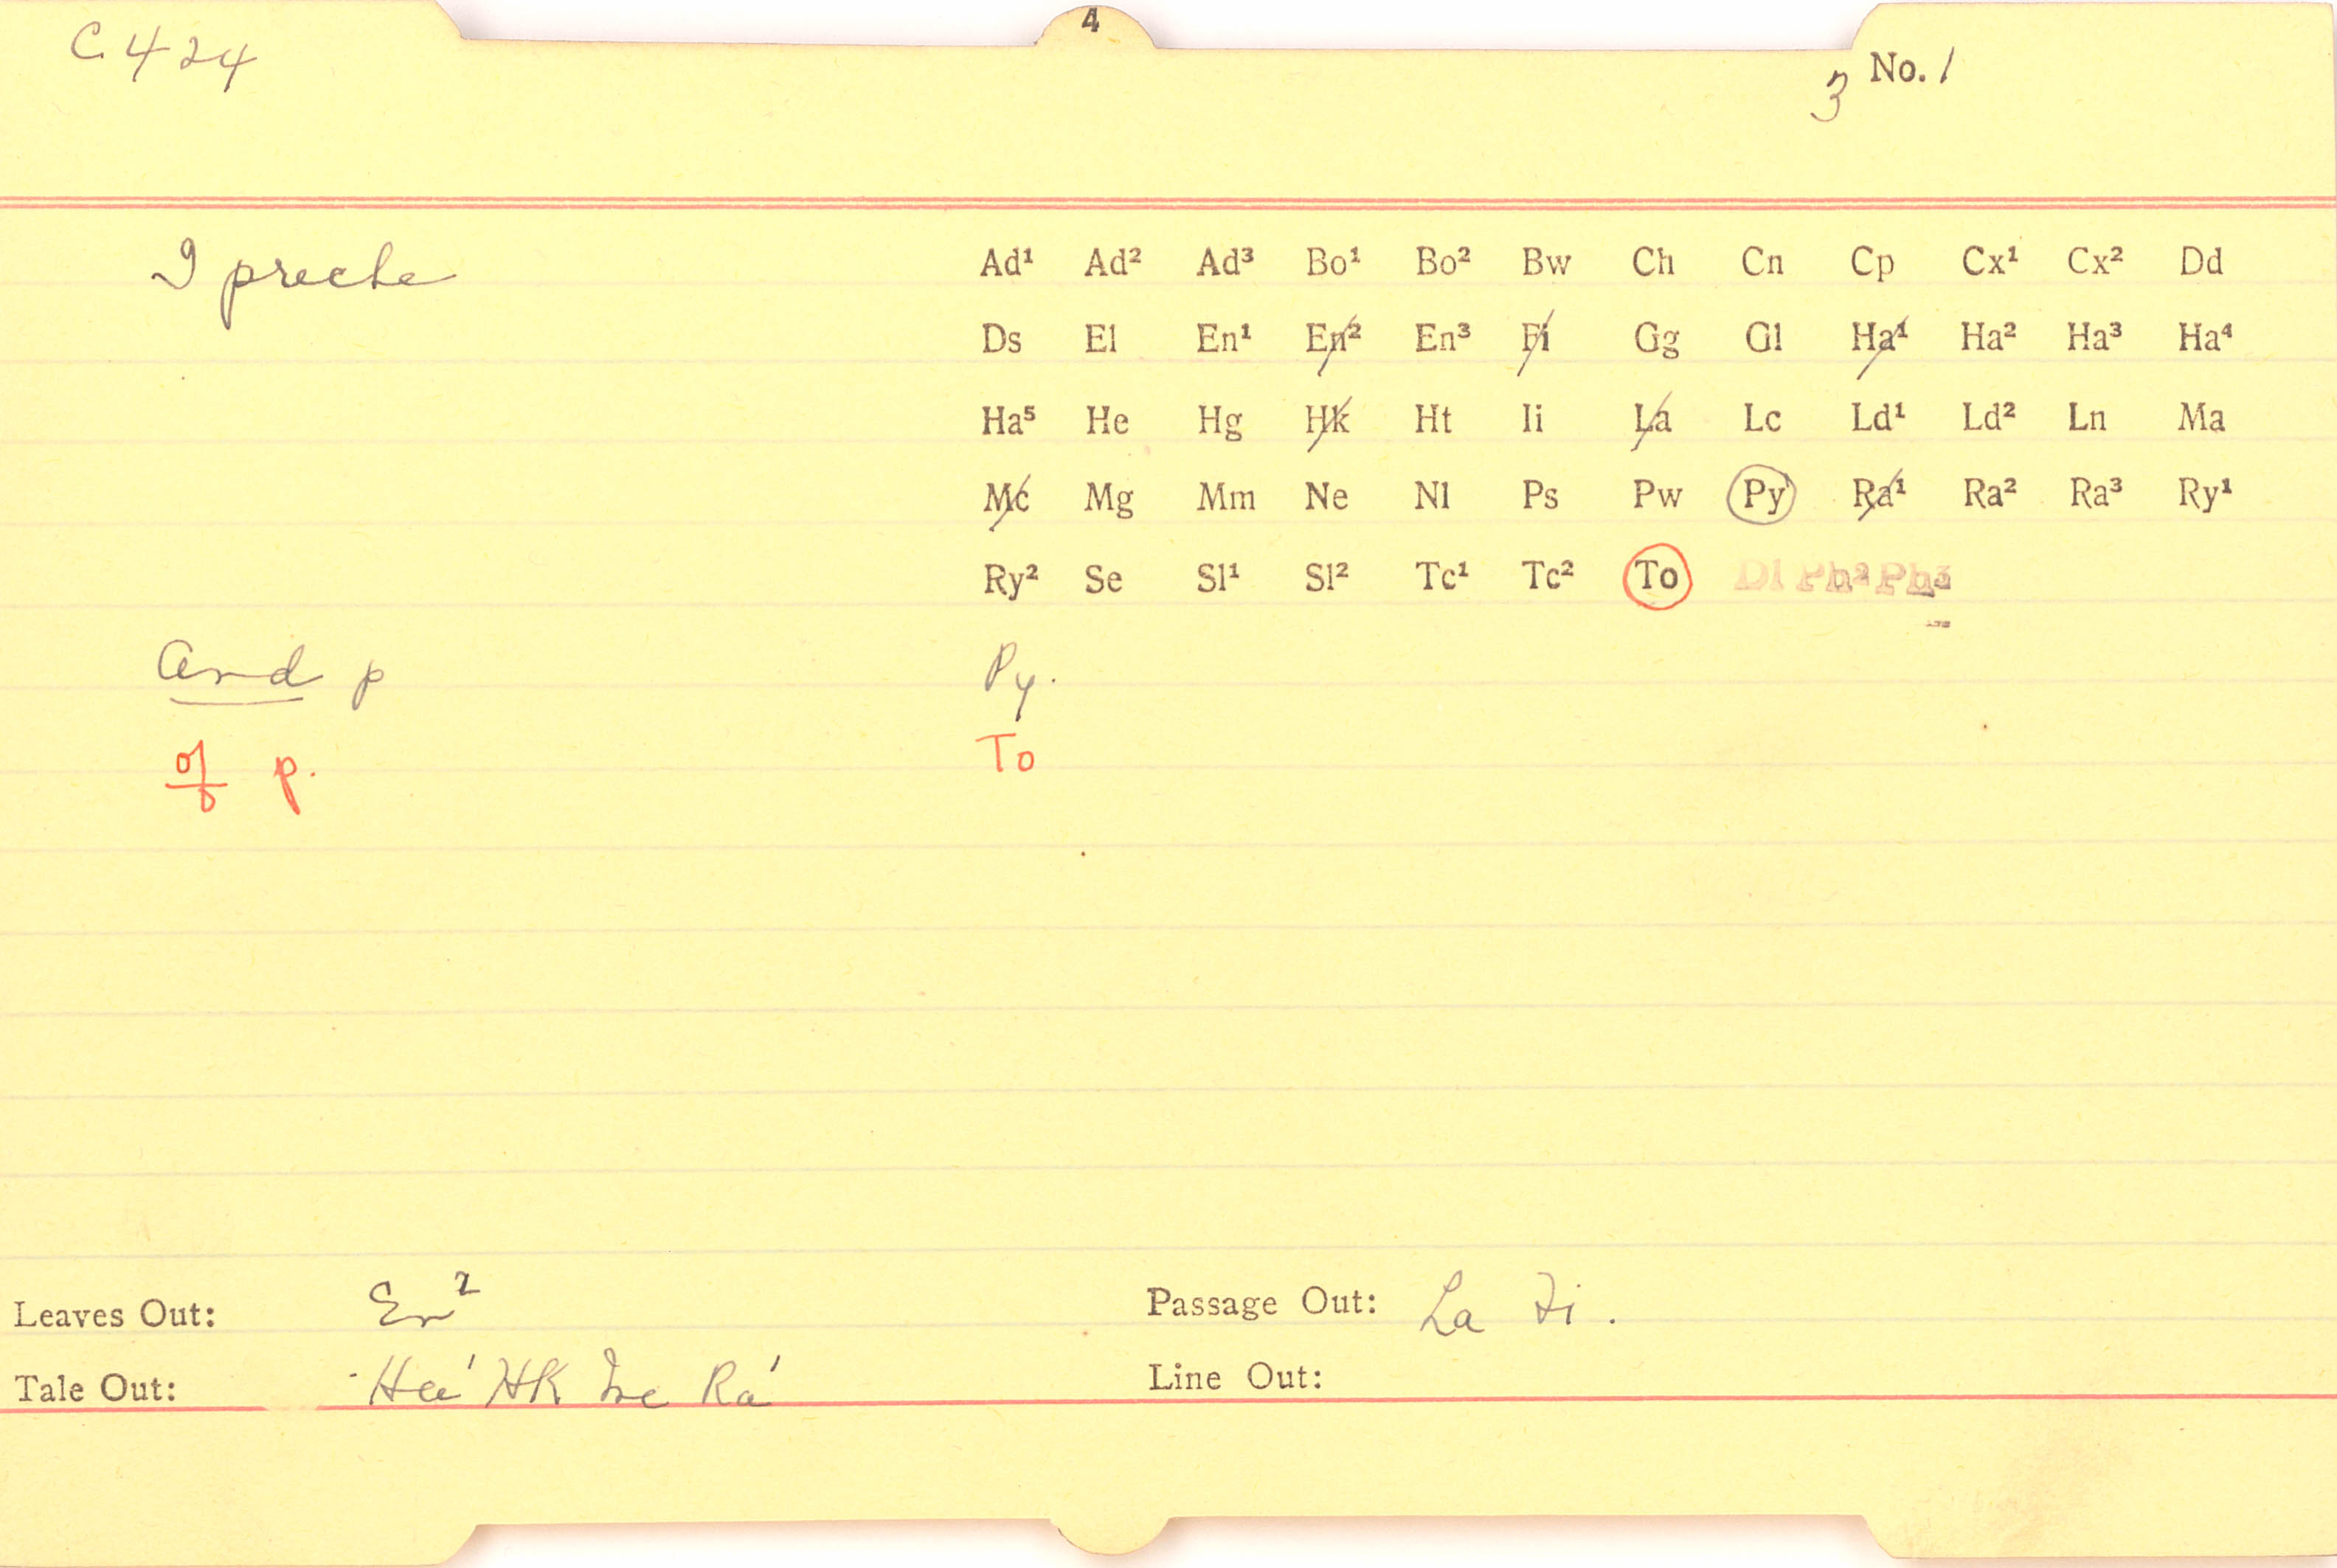 4
C 424
No. 1
3
I preche
Ad¹ Ad² Ad³ Bo¹ Bo² Bw Ch Cn Cp Cx¹ Cx² Dd
Ds El En¹ En² En³ Fi Gg Gl Ha¹ Ha² Ha³ Ha⁴
Ha⁵ He Hg Hk Ht Ii La Lc Ld¹ Ld² Ln Ma
Mc Mg Mm Ne Nl Ps Pw Py Ra¹ Ra² Ra³ Ry¹
Ry² Se Sl¹ Sl² Tc¹ Tc² To Dl Ph² Ph³
And p Py.
of p. To
Leaves Out: En² Passage Out: La Fi.
Tale Out: Ha¹ Hk Mc Ra¹ Line Out: